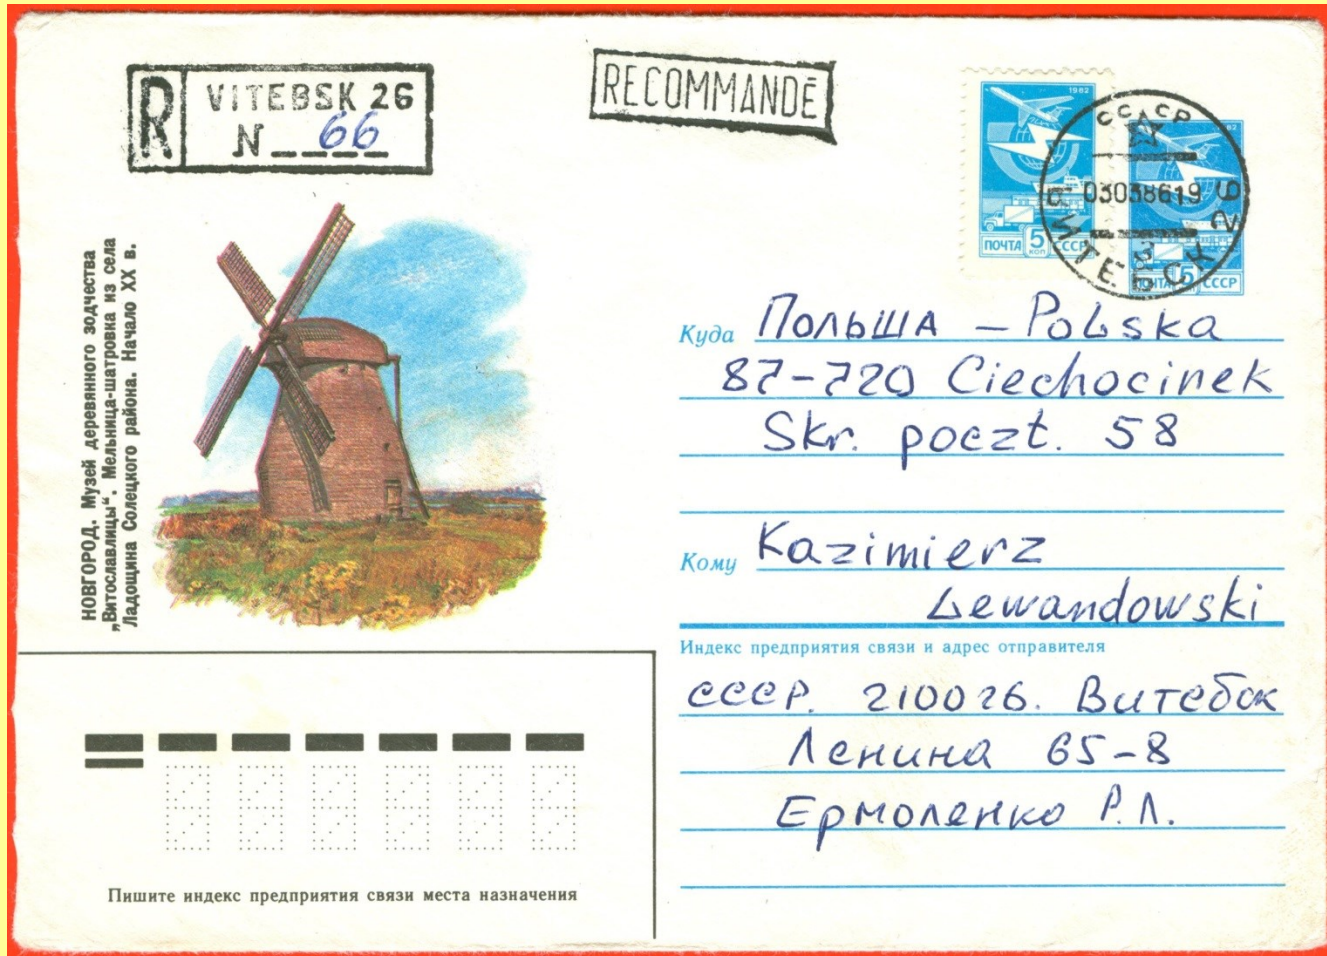 R VITEBSK 26
N 66
RECOMMANDÉ
1982
ПОЧТА 5 КОП СССР
ПОЧТА 5 СССР
СССР
03038619
ВИТЕБСК 26
НОВГОРОД. Музей деревянного зодчества
„Витославлицы“. Мельница-шатровка из села
Ладощина Солецкого района. Начало XX в.
Куда Польша – Polska
87-720 Ciechocinek
Skr. poczt. 58
Кому Kazimierz
Lewandowski
Индекс предприятия связи и адрес отправителя
СССР. 210026. Витебск
Ленина 65-8
Ермоленко Р.Л.
Пишите индекс предприятия связи места назначения